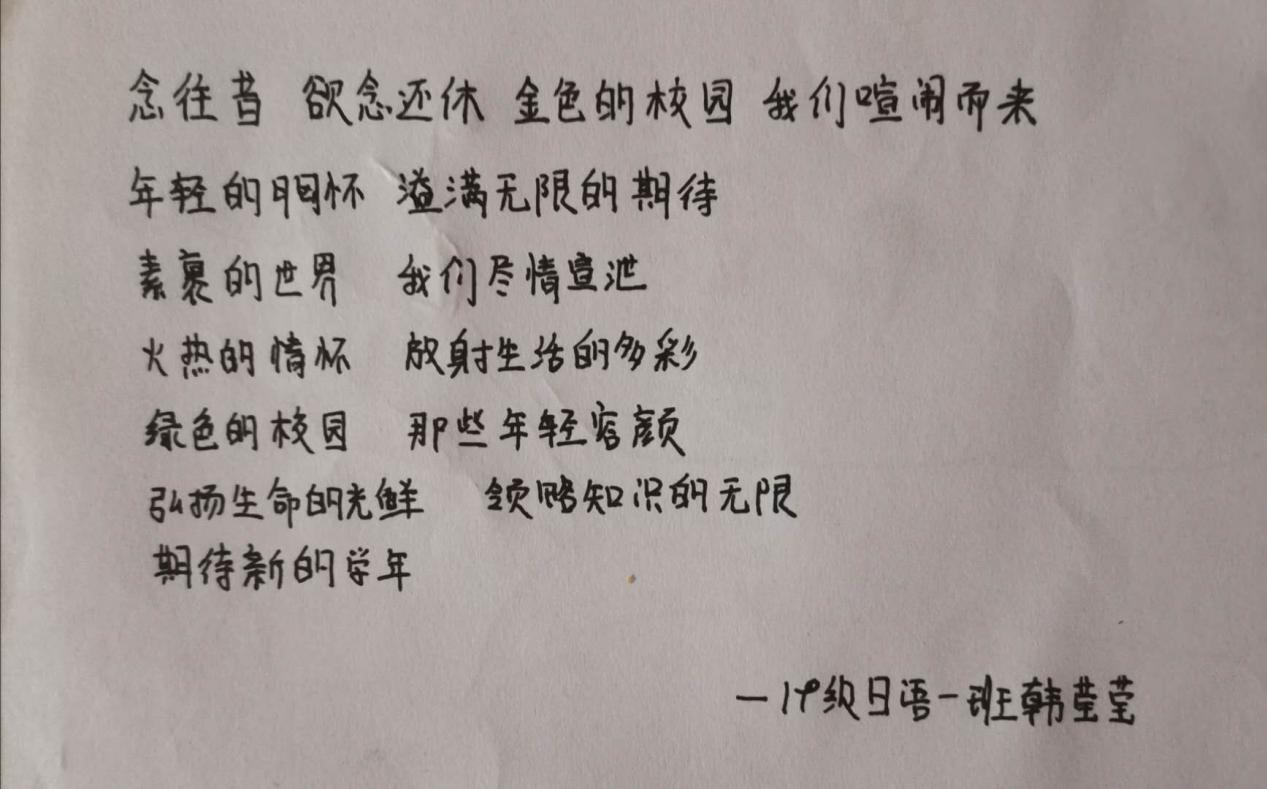 念往昔 欲念还休 金色的校园 我们喧闹而来
年轻的胸怀 溢满无限的期待
素裹的世界 我们尽情宣泄
火热的情怀 放射生活的多彩
绿色的校园 那些年轻容颜
弘扬生命的光鲜 领略知识的无限
期待新的学年
—19级日语一班韩莹莹